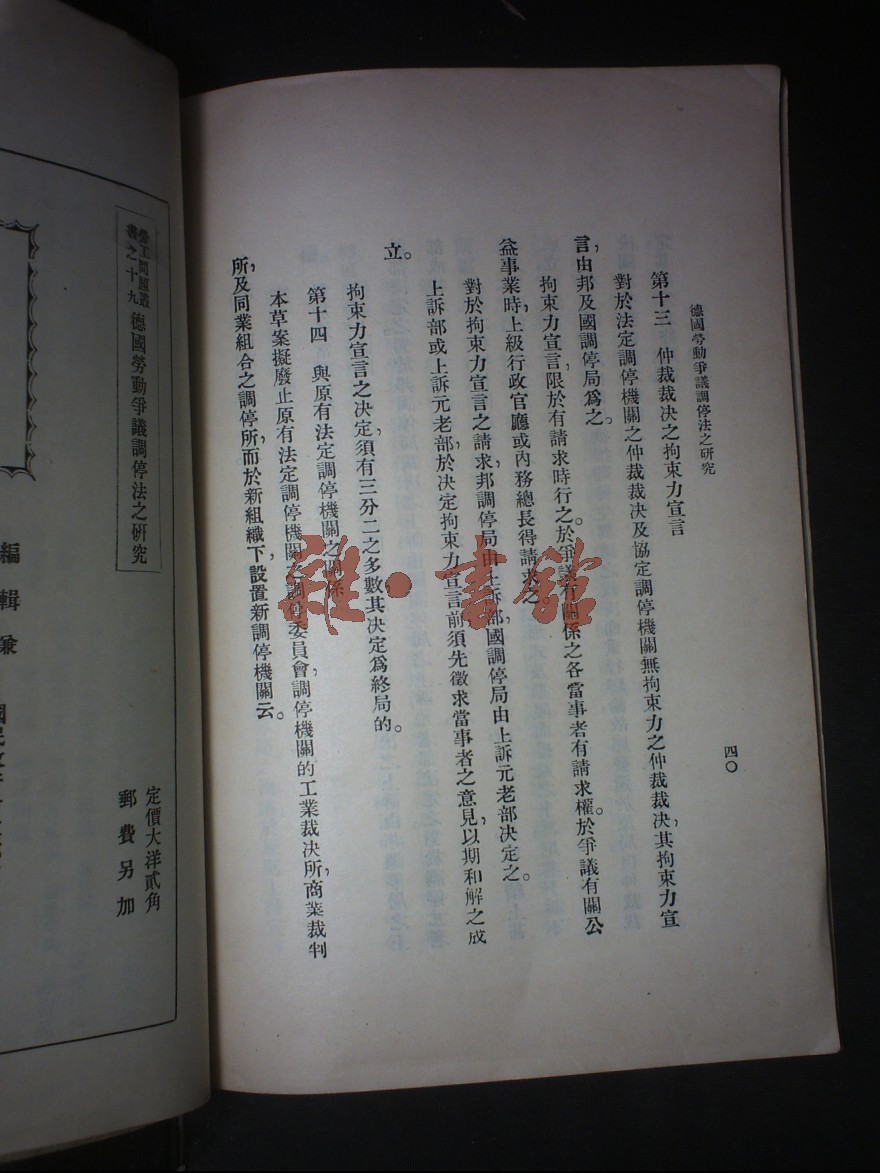 德國勞動爭議調停法之研究
四〇
第十三　仲裁裁决之拘束力宣言
對於法定調停機關之仲裁裁决及協定調停機關無拘束力之仲裁裁决,其拘束力宣
言,由邦及國調停局爲之。
拘束力宣言,限於有請求時行之。於爭議有關係之各當事者有請求權。於爭議有關公
益事業時,上級行政官廳或內務總長得請求之。
對於拘束力宣言之請求,邦調停局由上訴部,國調停局由上訴元老部决定之。
上訴部或上訴元老部,於决定拘束力宣言前,須先徵求當事者之意見,以期和解之成
立。
拘束力宣言之决定,須有三分二之多數,其决定爲終局的。
第十四　與原有法定調停機關之關係
本草案擬廢止原有法定調停機關之調停委員會,調停機關的工業裁决所,商業裁判
所,及同業組合之調停所,而於新組織下,設置新調停機關云。
勞工問題叢
書之十九
德國勞動爭議調停法之研究
編輯兼
國民政
定價大洋貳角
郵費另加
雜·書館